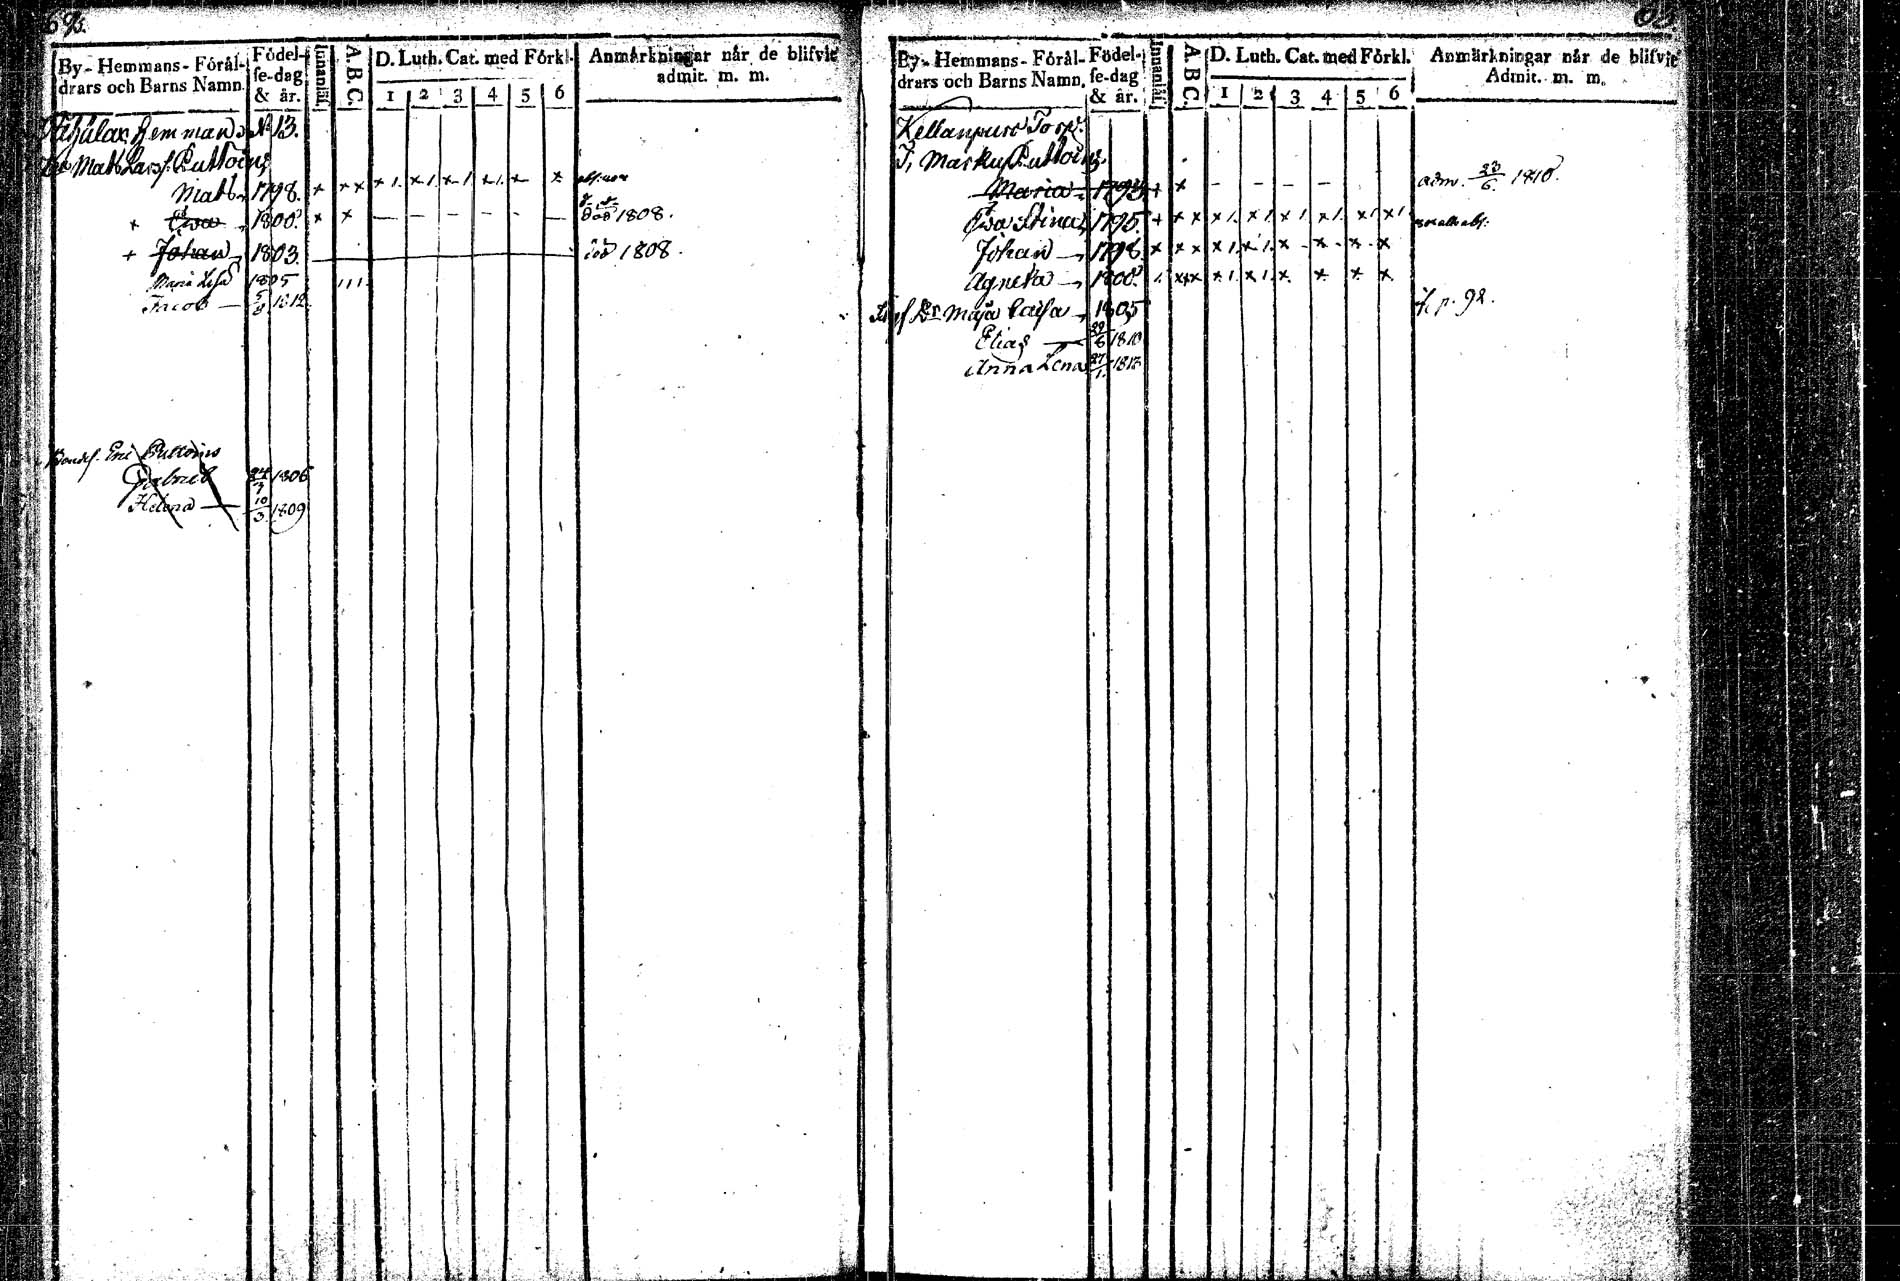 By- Hemmans- Förål-
drars och Barns Namn.
Födel-
se-dag
& år.
Innanläs.
A. B. C.
D. Luth. Cat. med Förkl.
1 2 3 4 5 6
Anmärkningar når de blifvit
admit. m. m.
Hemman No 13.
Mats Larss. Puttoins
Mats 1798. + x x x 1. x 1. x 1 x 1. x x
+ Eva 1800. x x — — — — — — död 1808.
+ Johan 1803. död 1808.
Maria Lisa 1805 111
Jacob — 5/8 1812
Bondes. Eric Puttoins
Gabriel 24/7 1806
Helena — 10/3 1809
By- Hemmans- Förål-
drars och Barns Namn.
Födel-
se-dag
& år.
Innanläs.
A. B. C.
D. Luth. Cat. med Förkl.
1 2 3 4 5 6
Anmärkningar når de blifvit
Admit. m. m.
Kellanpuro Torp.
T. Markus Puttoins
Maria 1793 + x – – – – adm. 23/6 1810.
Eva Stina 1795. + x x x 1. x 1 x 1 x 1. x 1 x 1
Johan 1798 x x x x 1 x 1. x - x - x - x
Agneta 1800. xxx x 1. x 1. x x x x
Maja Caisa 1805 p. 92.
Elias — 29/6 1810
Anna Lena 27/1. 1813